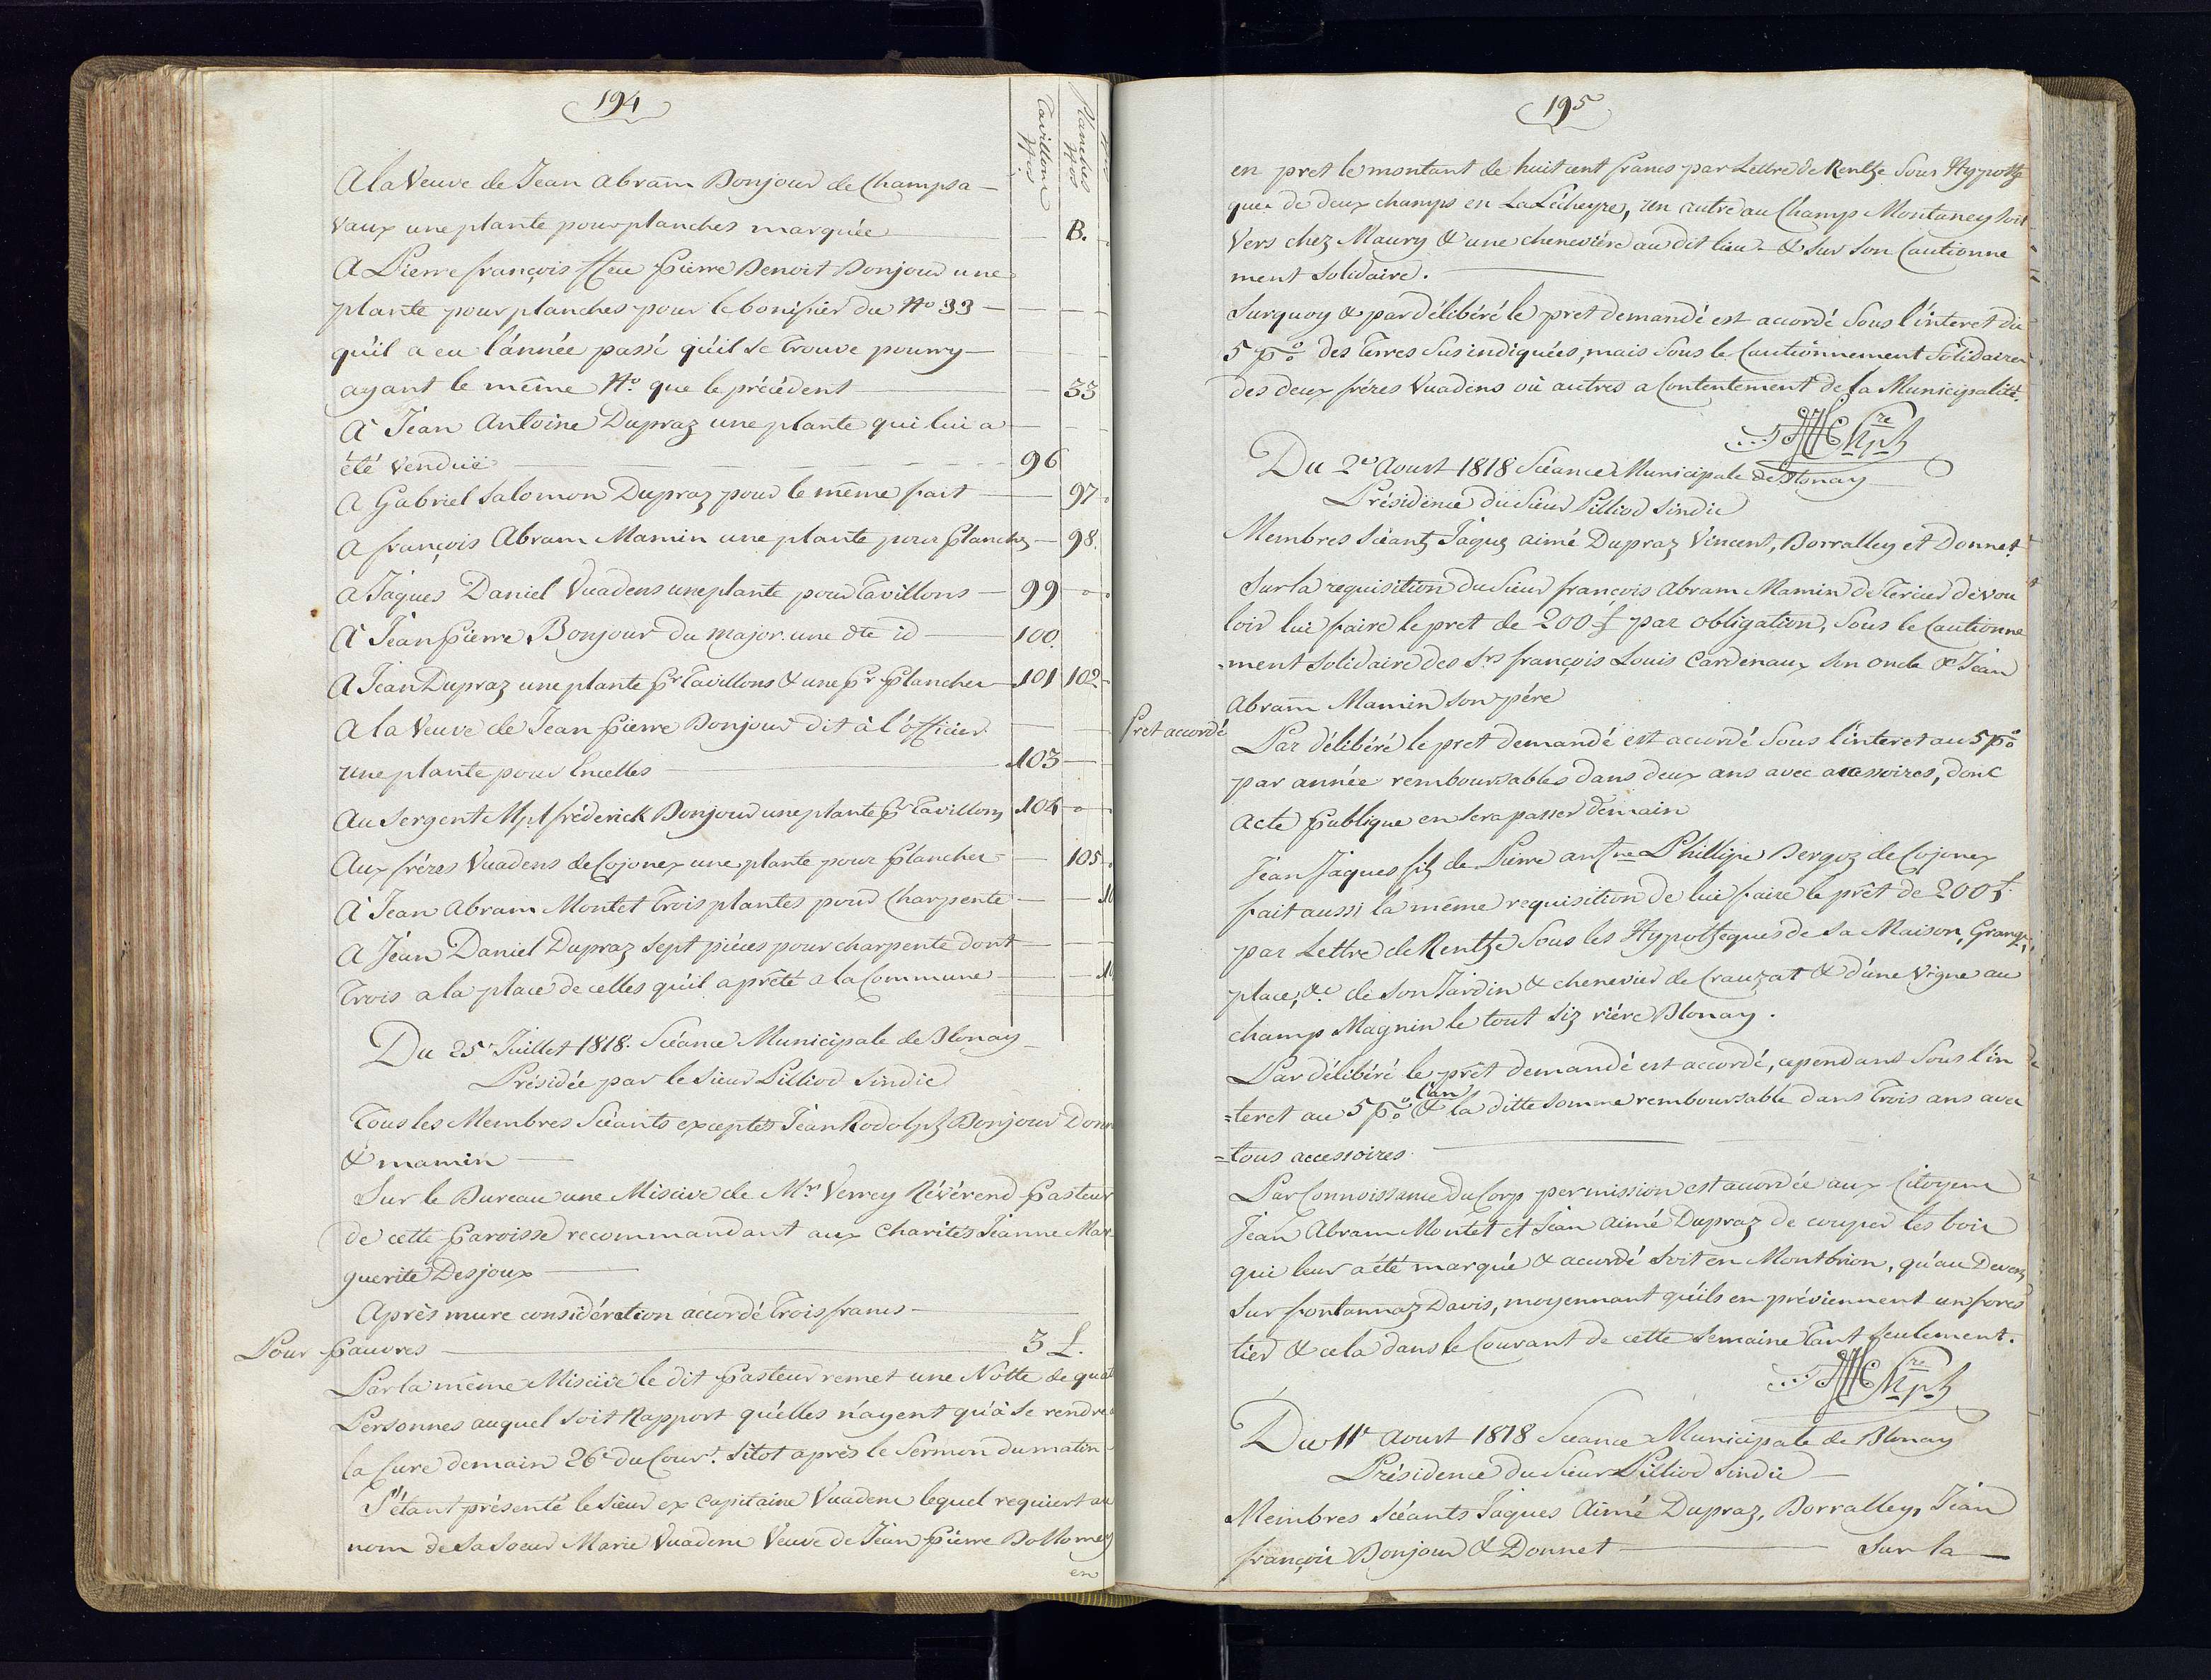 194
Tavillons Nos
Planches Nos
A la Veuve de Jean Abram Bonjour de Champsa-
vaux une plante pour planches marquée — B.
A Pierre françois ffeu Pierre Benoit Bonjour une
plante pour planches pour le bonifier du No 33 —
qu'il a eu l'année passé qu'il se trouve pourry —
ayant le même No que le précédent — 33
A Jean Antoine Dupraz une plante qui lui a
été venduë — 96
A Gabriel Salomon Dupraz pour le même fait — 97
A françois Abram Mamin une plante pour Planches — 98.
A Jaques Daniel Vuadens une plante pour Tavillons — 99
A Jean Pierre Bonjour du major une dte id — 100.
A Jean Dupraz une plante pr Tavillons & une pr Planches — 101 102
A la Veuve de Jean Pierre Bonjour dit à l'officier
une plante pour Encelles — 103
Au Sergent Mpl fréderick Bonjour une plante pr Tavillons 104
Aux fréres Vuadens de Cojonex une plante pour Planches — 105
A Jean Abram Montet trois plantes pour Charpente —
A Jean Daniel Dupraz sept piéces pour charpente dont
trois a la place de celles qu'il a prêté a la Commune —
Du 25e Juillet 1818. Séance Municipale de Blonay
Présidée par le Sieur Pilliod Sindic
Tous les Membres Séants exceptés Jean Rodolph Bonjour Donn
& mamin —
Sur le Bureau une Miscive de Mr Verrey Révérend Pasteur
de cette Paroisse recommandant aux Charités Jeanne Mar
guerite Desjoux —
Après mure considération accordé trois francs —
Pour Pauvres — 3 L.
Par la même Miscive le dit Pasteur remet une Notte de quat
Personnes auquel soit Rapport qu'elles n'ayent qu'à se rendre
la Cure demain 26e du Cour.t sitot après le Sermon du matin
S'étant présenté le Sieur ex Capitaine Vuadens lequel requiert au
nom de sa Soeur Marie Vuadens Veuve de Jean Pierre Bottomey
en
195
en pret le montant de huit cent francs par Lettre de Rentze sous Hypothe
que de deux champs en La Lécheyre, un autre au Champ Montaney soit
vers chez Maury & une cheneviére au dit lieu - & sur son Cautionne
ment solidaire. —
Surquoy & par délibéré le pret demandé est accordé sous l'interet du
5 p% des terres susindiquées, mais sous le Cautionnement Solidaire
des deux fréres Vuadens où autres a Contentement de la Municipalité.
Du 2e Aoust 1818 Séance Municipale de Blonay
Présidence du Sieur Pilliod Sindic
Membres Séants Jaques aimé Dupraz Vincent, Borralley et Donnet
Sur la requisition du Sieur françois Abram Mamin de Tercier de vou
loir lui faire le pret de 200 £ par obligation, sous le Cautionne
=ment solidaire des Srs françois Louis Cardinaux son oncle & Jean
Abram Mamin son pére
Pret accordé
Par délibéré le pret demandé est accordé sous l'interet au 5 p%
par année remboursables dans deux ans avec accessoires, donc
acte Publique en sera passer demain
Jean Jaques fils de Pierre antne Phillipe Bergoz de Cojonex
fait aussi la même requisition de lui faire le prêt de 200 £.
par Lettre de Rentze sous les Hypotheques de sa Maison, Grange,
place, &c de son Jardin & chenevier de Crauzat & d'une vigne au
champ Magnin le tout siz riére Blonay.
Par délibéré le prêt demandé est accordé, cependant sous l'in
=teret au 5 p% (l'an) & la ditte somme remboursable dans trois ans avec
=tous accessoires. —
Par Connoissance du Corp permission est accordée aux Citoyens
Jean Abram Montet et Jean Aimé Dupraz de couper les bois
qui leur a été marqué & accordé soit en Montbrion, qu'au Devenz
sur fontannaz Davis, moyennant qu'ils en préviennent un fores
tier & cela dans le Courant de cette semaine tant seulement.
Du 11e Aoust 1818 Séance Municipale de Blonay
Présidence du Sieur Pilliod Sindic —
Membres Séants Jaques Aimé Dupraz, Borralley, Jean
françois Bonjour & Donnet — Sur la —